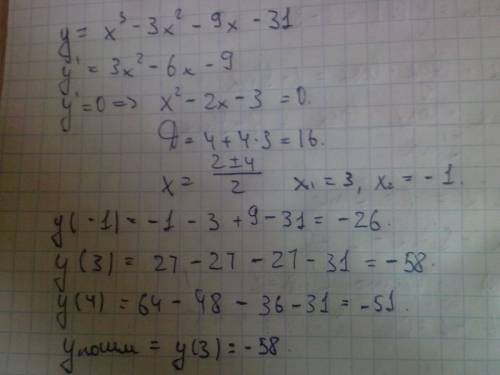 y = x³ - 3x² - 9x - 31
y' = 3x² - 6x - 9
y' = 0 => x² - 2x - 3 = 0.
D = 4 + 4·3 = 16.
x = (2 ± 4)/2 x₁ = 3, x₂ = -1.
y(-1) = -1 - 3 + 9 - 31 = -26.
y(3) = 27 - 27 - 27 - 31 = -58.
y(4) = 64 - 48 - 36 - 31 = -51.
= y(3) = -58.